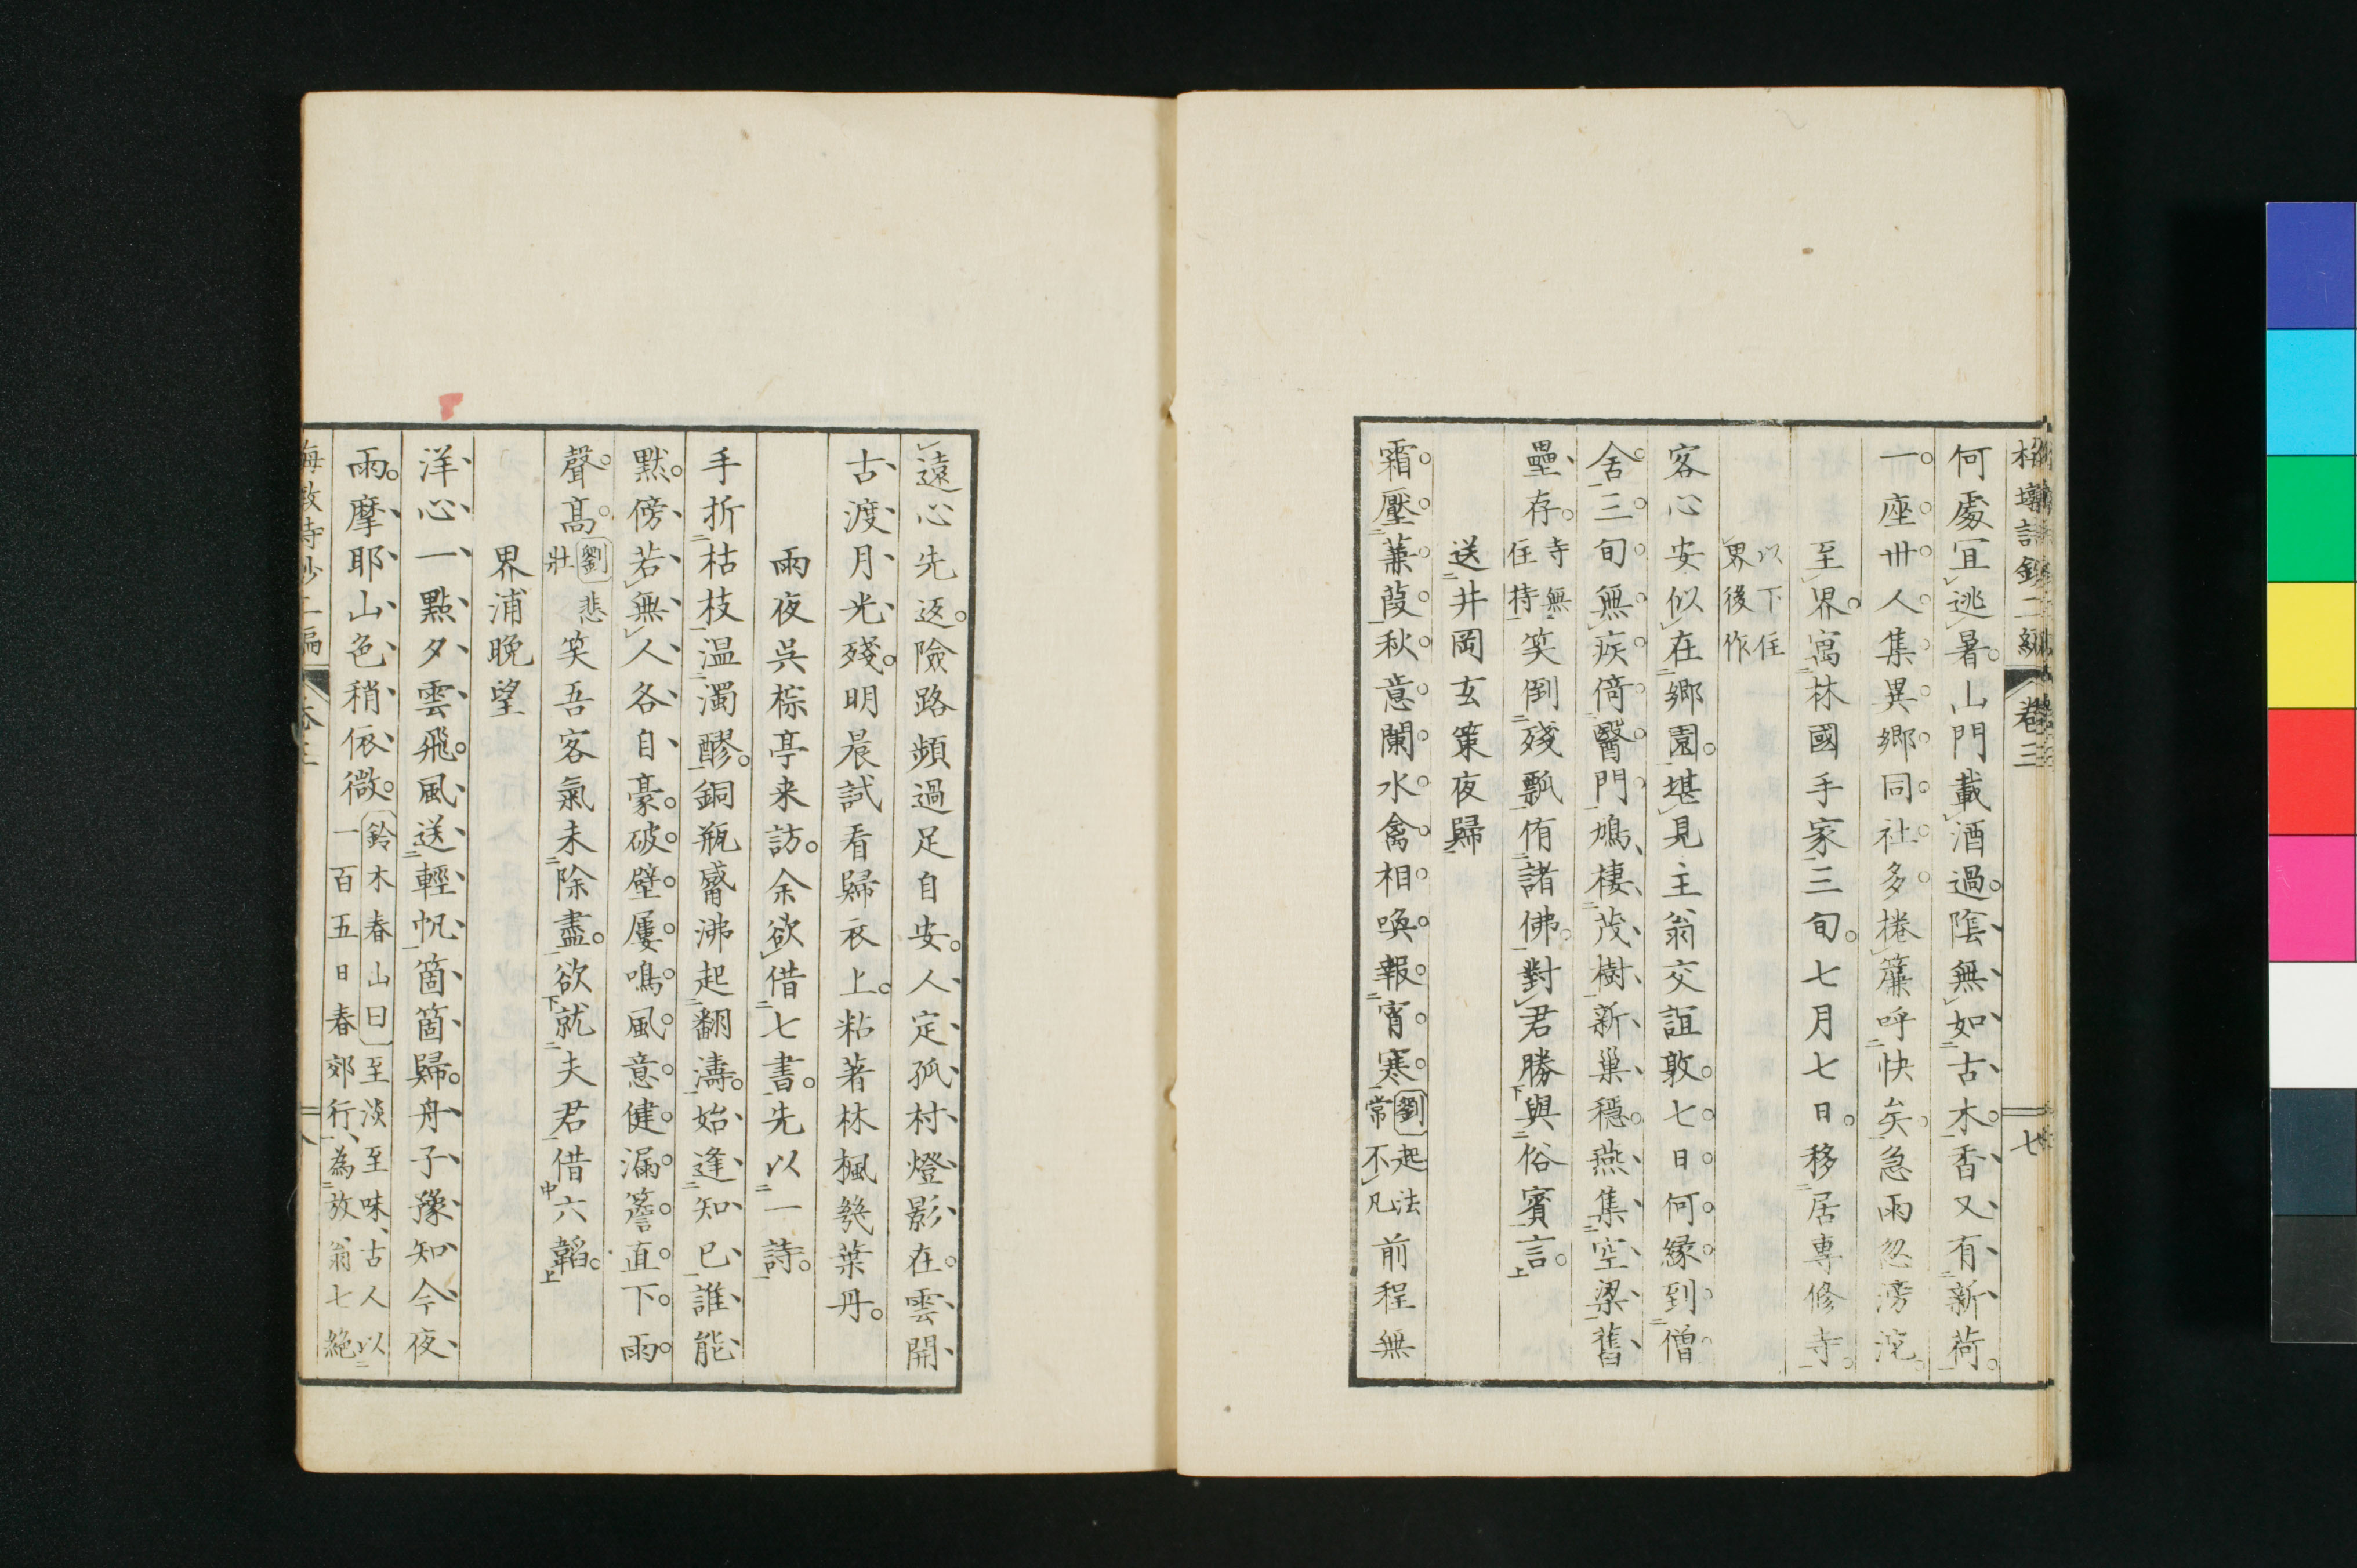 卷三
七
何處宜逃暑。山門載酒過。陰無如古木。香又有新荷。
一座卅人集。異鄉同社多。捲簾呼快矣。急雨忽滂沱。
至界。寓林國手家三旬。七月七日。移居專修寺。
以下住
界後作
客心安似在鄉園。堪見主翁交誼敦。七日何緣到僧
舍。三旬無疾倚醫門。鳩棲茂樹新巢穩。燕集空梁舊
壘存。寺無住持笑倒殘瓢侑諸佛。對君勝與俗賓言。
送井岡玄策夜歸
霜壓蒹葭秋意闌。水禽相喚報宵寒。劉起法常不凡前程無
遠心先返。險路頻過足自安。人定孤村燈影在。雲開
古渡月光殘。明晨試看歸衣上。粘著林楓幾葉丹。
雨夜吳棕亭来訪。余欲借七書。先以一詩。
手折枯枝温濁醪。銅瓶觱沸起翻濤。始逢知已誰能
默。傍若無人各自豪。破壁屢鳴風意健。漏簷直下雨
聲高。劉悲壯笑吾客氣未除盡。欲就夫君借六韜。
界浦晚望
洋心一點夕雲飛。風送輕帆箇箇歸。舟子豫知今夜
雨。摩耶山色稍依微。鈴木春山曰至淡至味、古人以
一百五日春郊行、為放翁七絶